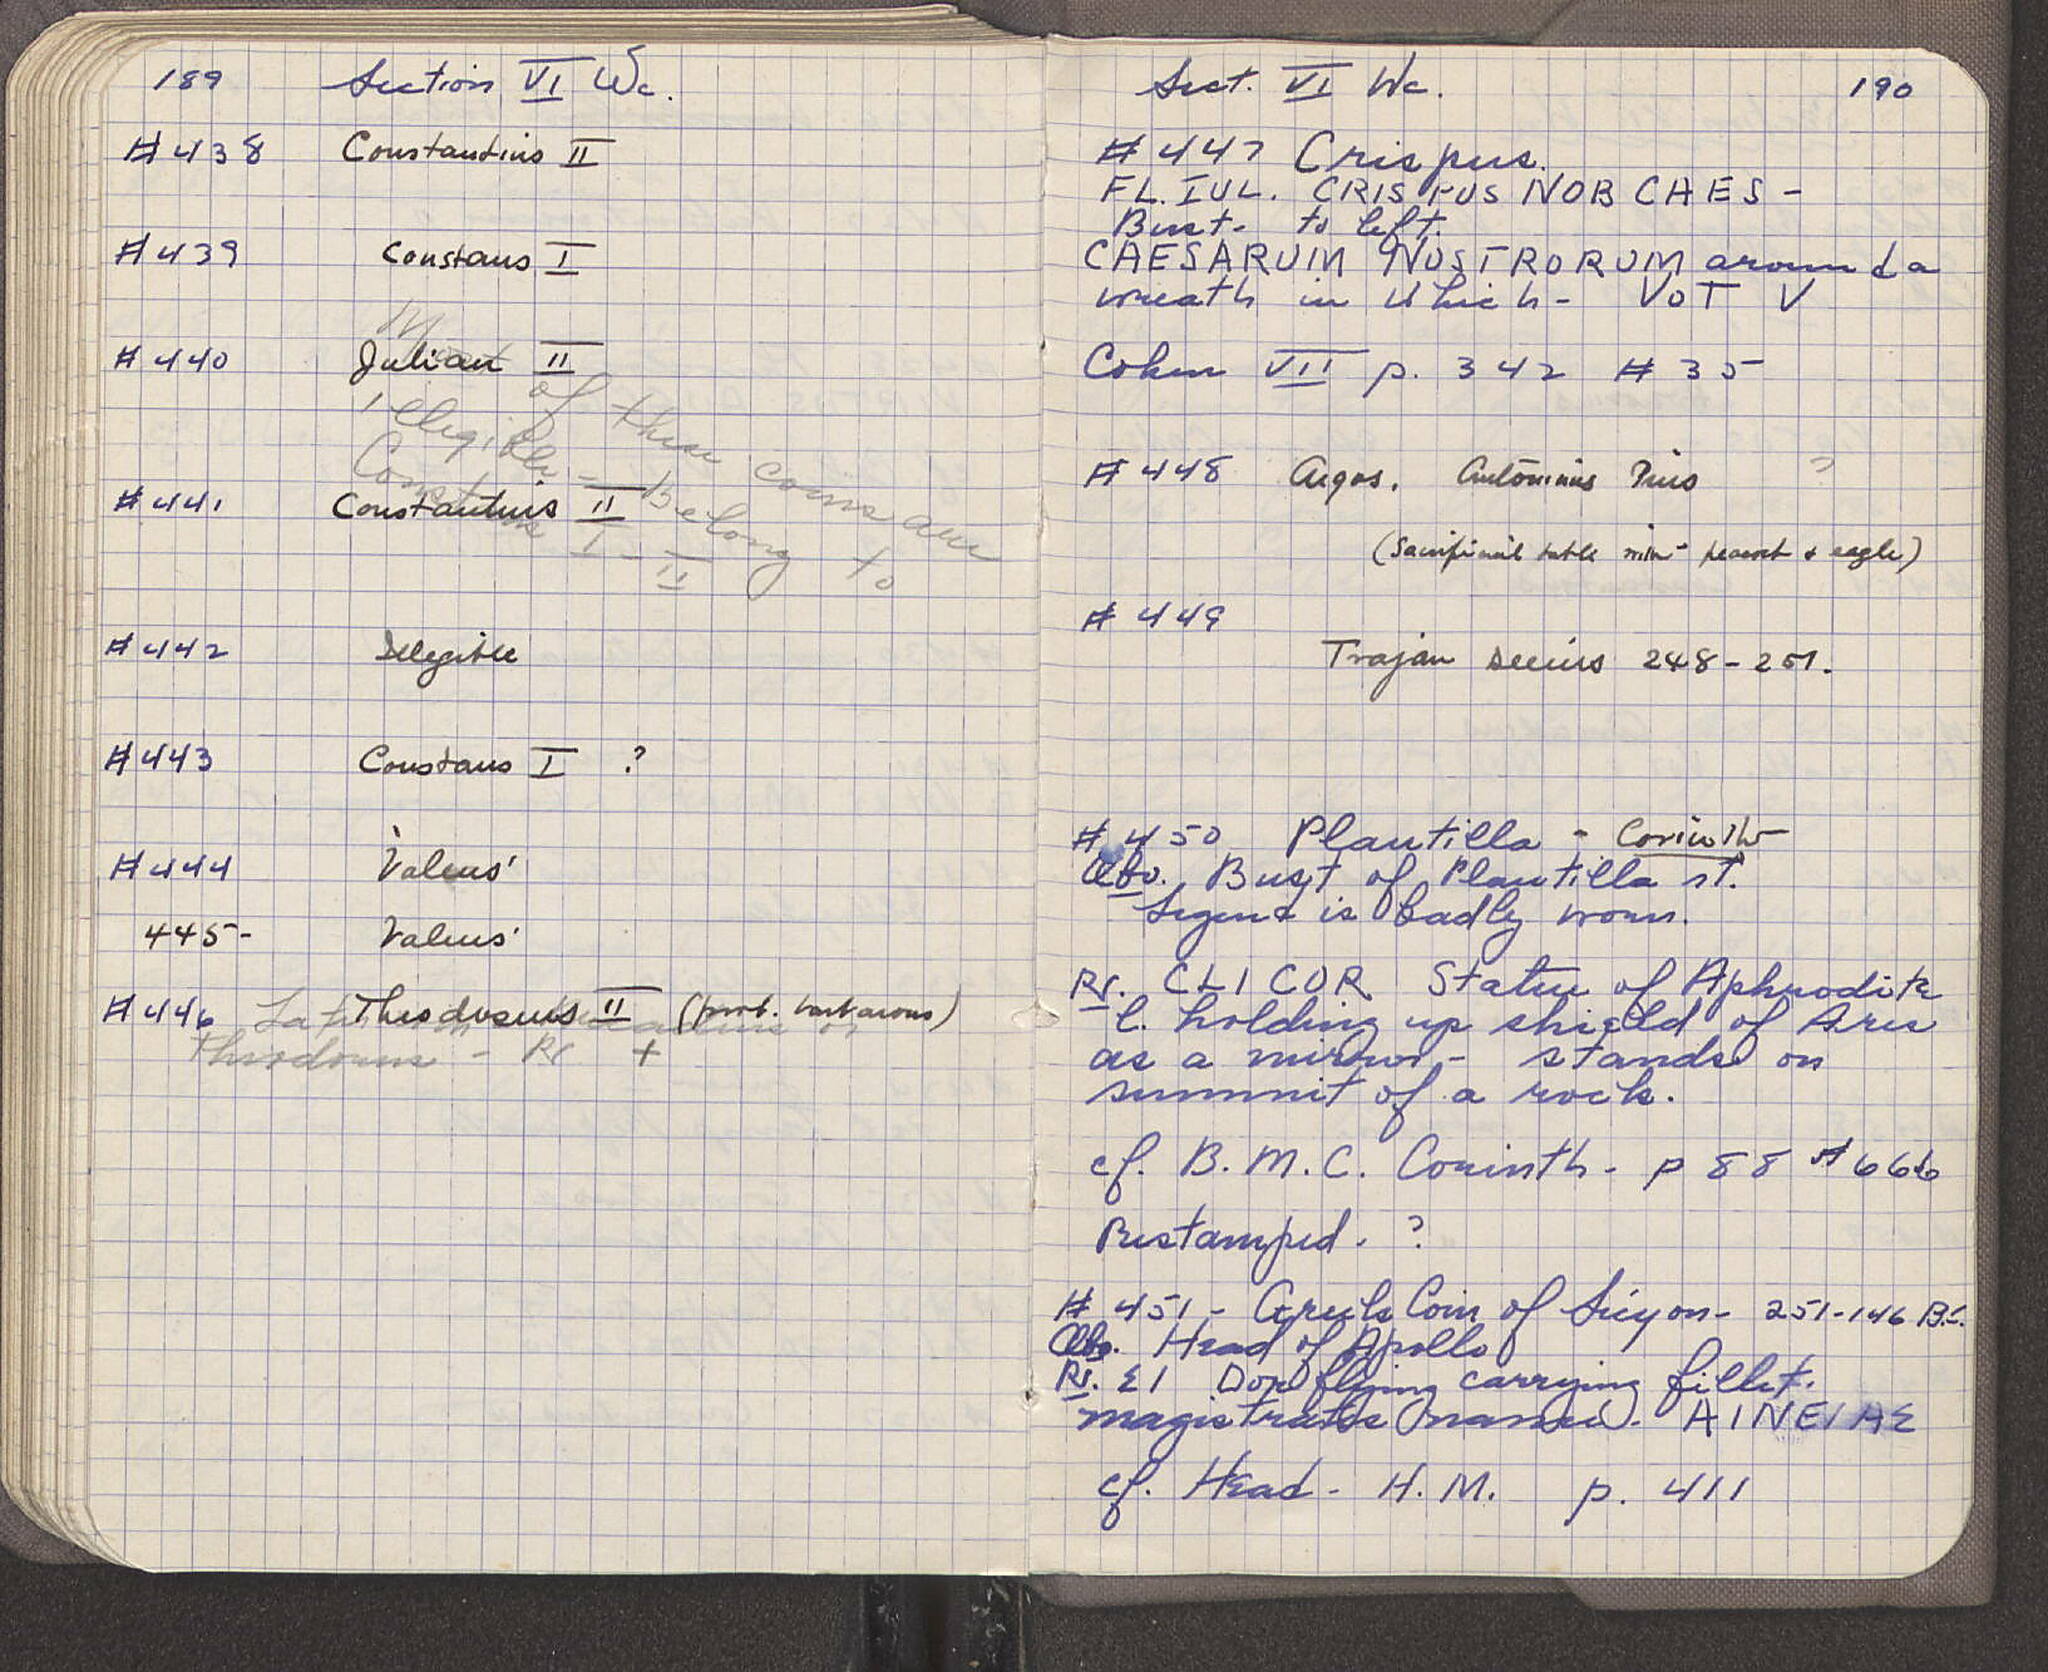 189 Section VI Wc.
#438 Constantius II
#439 Constans I
Most
#440 Julian II
of these coins are
illegible - Belong to
#441 Constantius II
Constans I - II
#442 Illegible
#443 Constans I ?
#444 Valens
445- Valens
#446 Theodosius II (prob. barbarous)
Theodosius - Rv +
Sect. VI Wc. 190
#447 Crispus.
FL. IUL. CRISPUS NOB CAES -
Bust - to left.
CAESARUM NOSTRORUM around a
wreath in which - VOT V
Cohen VII p. 342 #35
#448 Argos. Antoninus Pius ?
(Sacrificial table with peacock & eagle)
#449
Trajan Decius 248-251.
#450 Plautilla - Corinth
Obv. Bust of Plautilla rt.
Legend is badly worn.
Rv. CLI COR Statue of Aphrodite
l. holding up shield of Ares
as a mirror - stands on
summit of a rock.
cf. B.M.C. Corinth - p 88 #666
Restamped - ?
#451 - Greek Coin of Sicyon - 251-146 B.C.
Obv. Head of Apollo
Rv. ΣI Dove flying carrying fillet.
magistrates name. AINEIAΣ
cf. Head - H.M. p. 411